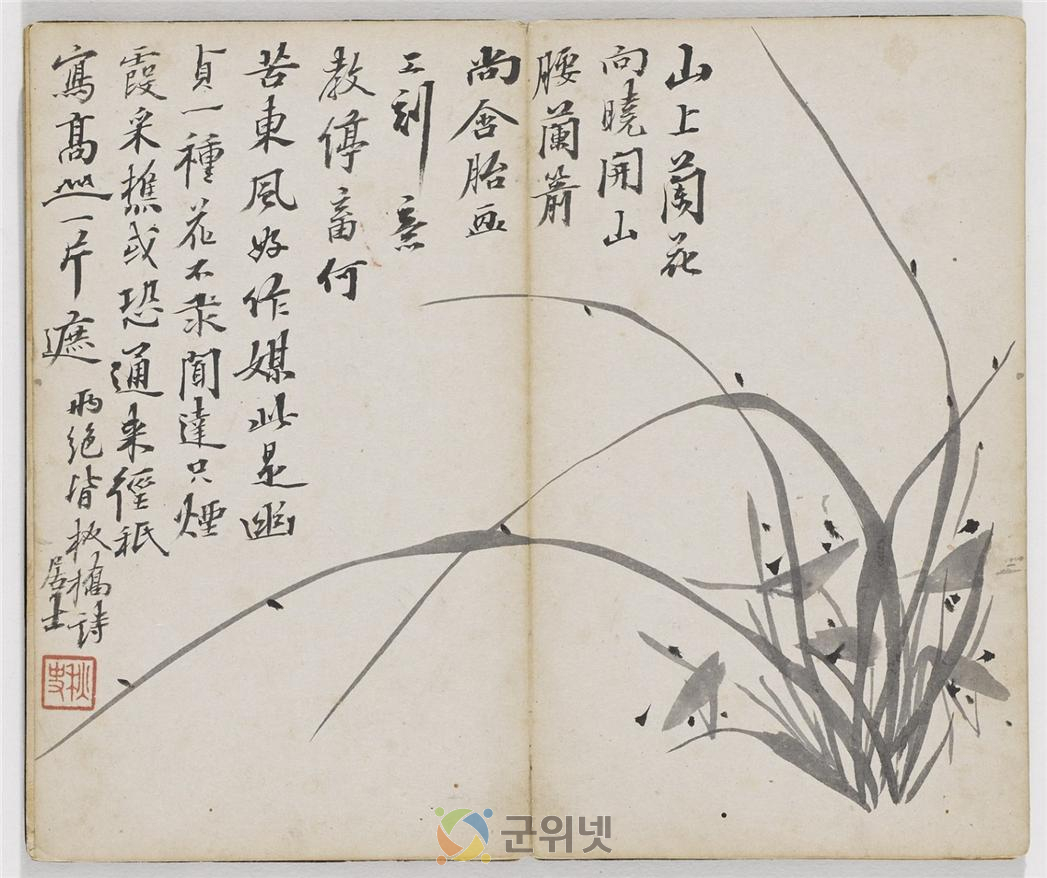 山上蘭花
向曉開山
腰蘭箭
尚含胎画
工刻意
教停畜何
苦東風好作媒此是幽
貞一種花不求聞達只煙
霞采樵或恐通来徑秪
寫高山一片遮
兩絶皆板橋詩
居士
秋史
군위넷